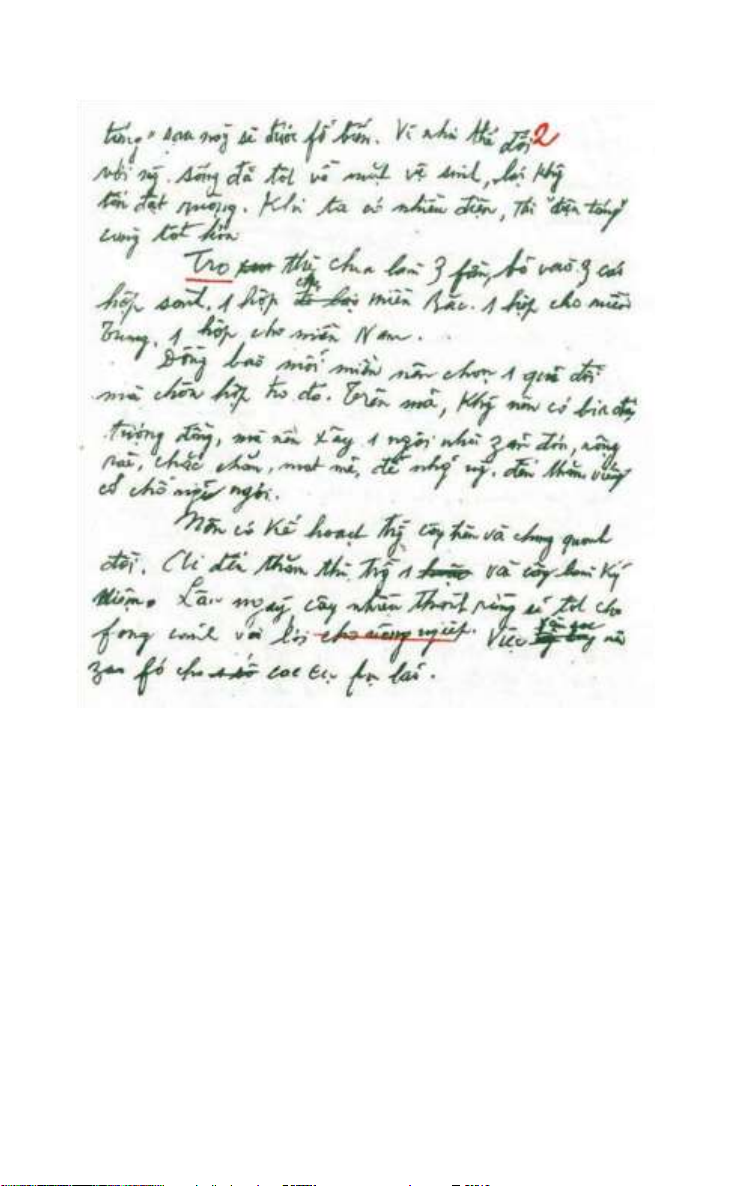 táng" sau nảy sẽ được fổ biến. Vì như thế đối 2
với ng. sống đã tốt về mặt vệ sinh, lại khg
tốn đất ruộng. Khi ta có nhiều điện, thì "điện táng"
càng tốt hơn
Tro thì chia làm 3 fần, bỏ vào 3 cái
hộp sành. 1 hộp cho miền Bắc. 1 hộp cho miền
Trung. 1 hộp cho miền Nam.
Đồng bào mỗi miền nên chọn 1 quả đồi
mà chôn hộp tro đó. Trên mả, khg nên có bia đá,
tượng đồng, mà nên xây 1 ngôi nhà zản đón, rộng
rãi, chắc chắn, mát mẻ, để nhg ng. đến thăm viếng
có chỗ ngồi.
Nên có kế hoạch trg cây trên và chung quanh
đồi. Ai đến thăm thì trg 1 vài cây làm kỷ
niệm. Lâu ngày, cây nhiều thành rừng sẽ tốt cho
fong cảnh và lợi cho nông ngiệp. Việc săn sóc nên
zao fó cho các cụ fụ lão.